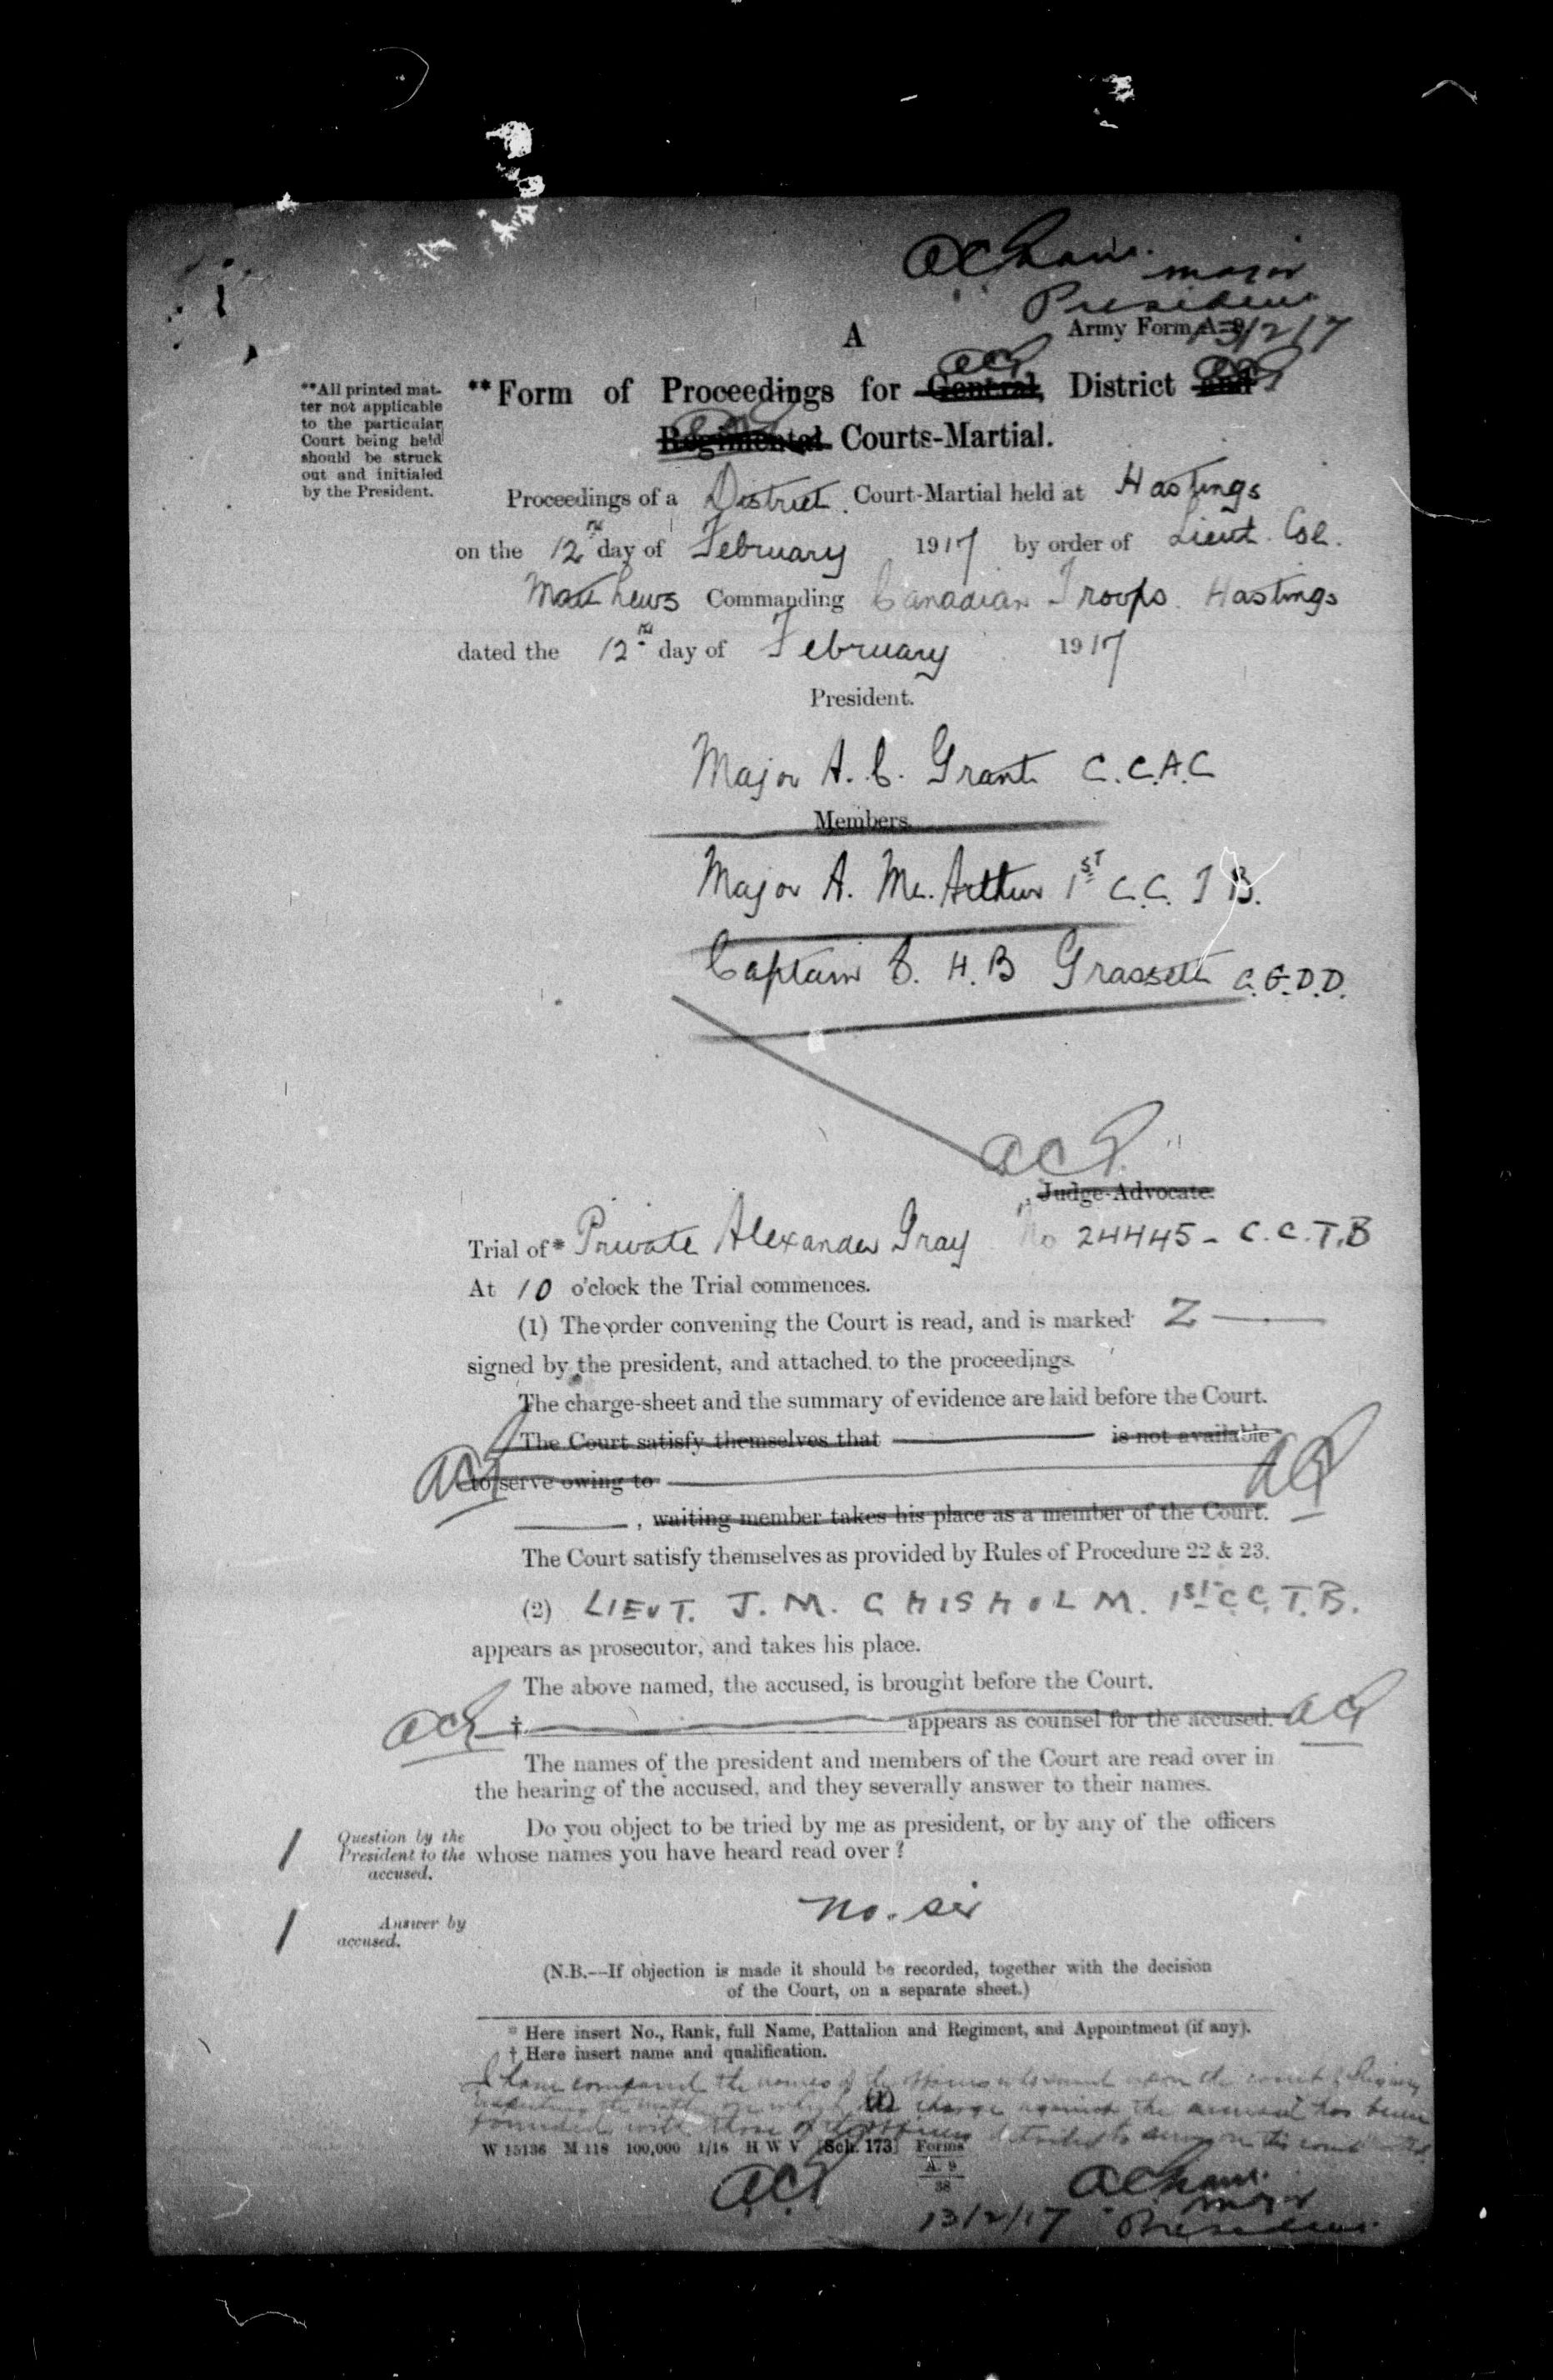 A C Grant. Major
President
A
Army Form A 9
13/2/17
ACG
**All printed mat-
ter not applicable
to the particular
Court being held
should be struck
out and initialed
by the President.
**Form of Proceedings for General, District and
Regimental Courts-Martial.
Proceedings of a District. Court-Martial held at Hastings
on the 12th day of February 1917 by order of Lieut. Col.
Matthews Commanding Canadian Troops. Hastings
dated the 12th day of February 1917
President.
Major A. C. Grant C.C.A.C
Members.
Major A. Mc.Arthur 1st C.C. T B.
Captain H. B Grassett C.E.D.D.
ACG
Judge-Advocate.
Trial of* Private Alexander Gray No 24445 - C.C.T.B
At 10 o'clock the Trial commences.
(1) The order convening the Court is read, and is marked Z
signed by the president, and attached to the proceedings.
The charge-sheet and the summary of evidence are laid before the Court.
The Court satisfy themselves that is not available
ACG to serve owing to ACG
, waiting member takes his place as a member of the Court.
The Court satisfy themselves as provided by Rules of Procedure 22 & 23.
(2) LIEUT. J. M. CHISHOLM. 1st C.C.T.B.
appears as prosecutor, and takes his place.
The above named, the accused, is brought before the Court.
ACG † appears as counsel for the accused. ACG
The names of the president and members of the Court are read over in
the hearing of the accused, and they severally answer to their names.
1 Question by the
President to the
accused.
Do you object to be tried by me as president, or by any of the officers
whose names you have heard read over?
1 Answer by
accused.
No. sir
(N.B.—If objection is made it should be recorded, together with the decision
of the Court, on a separate sheet.)
* Here insert No., Rank, full Name, Battalion and Regiment, and Appointment (if any).
† Here insert name and qualification.
I have compared the names of the officers who upon the court of
the matter on which the charge against the accused has been
founded with those of the officers detailed to serve on this court
(1)
W 15136 M 118 100,000 1/16 H W V [Sch. 173] Forms
A. 9
38
ACG
A C Grant.
Major
13/2/17 President